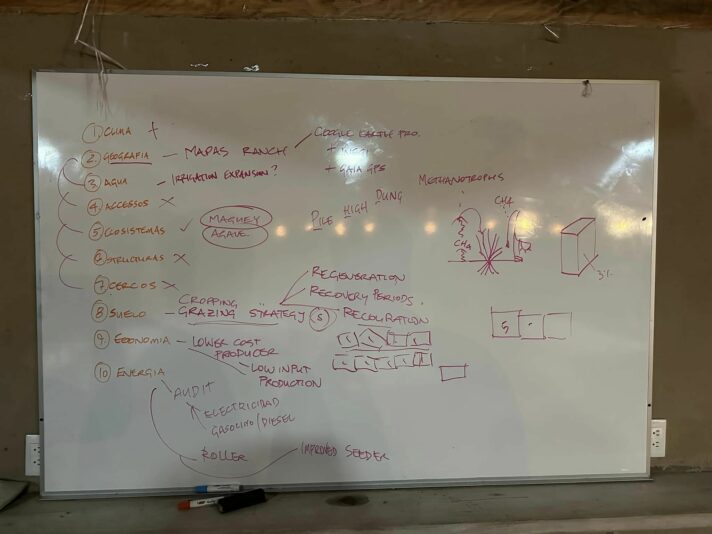 ① CLIMA +
② GEOGRAFIA — MAPAS RANCH — GOOGLE EARTH PRO.
③ AGUA — IRRIGATION EXPANSION?
+ GAIA GPS
④ ACCESSOS ×
⑤ ECOSISTEMAS ✓ MAGUEY
AGAVE
PILE HIGH DUNG
METHANOTROPHS
CH4
CH4
⑥ STRUCTURAS ×
⑦ CERCOS ×
⑧ SUELO — CROPPING
GRAZING STRATEGY
REGENERATION
RECOVERY PERIODS.
⑨ ECONOMIA — LOWER COST
PRODUCER
LOW INPUT
PRODUCTION
⑩ ENERGIA
AUDIT
ELECTRICIDAD
GASOLINO/DIESEL
ROLLER
IMPROVED SEEDER